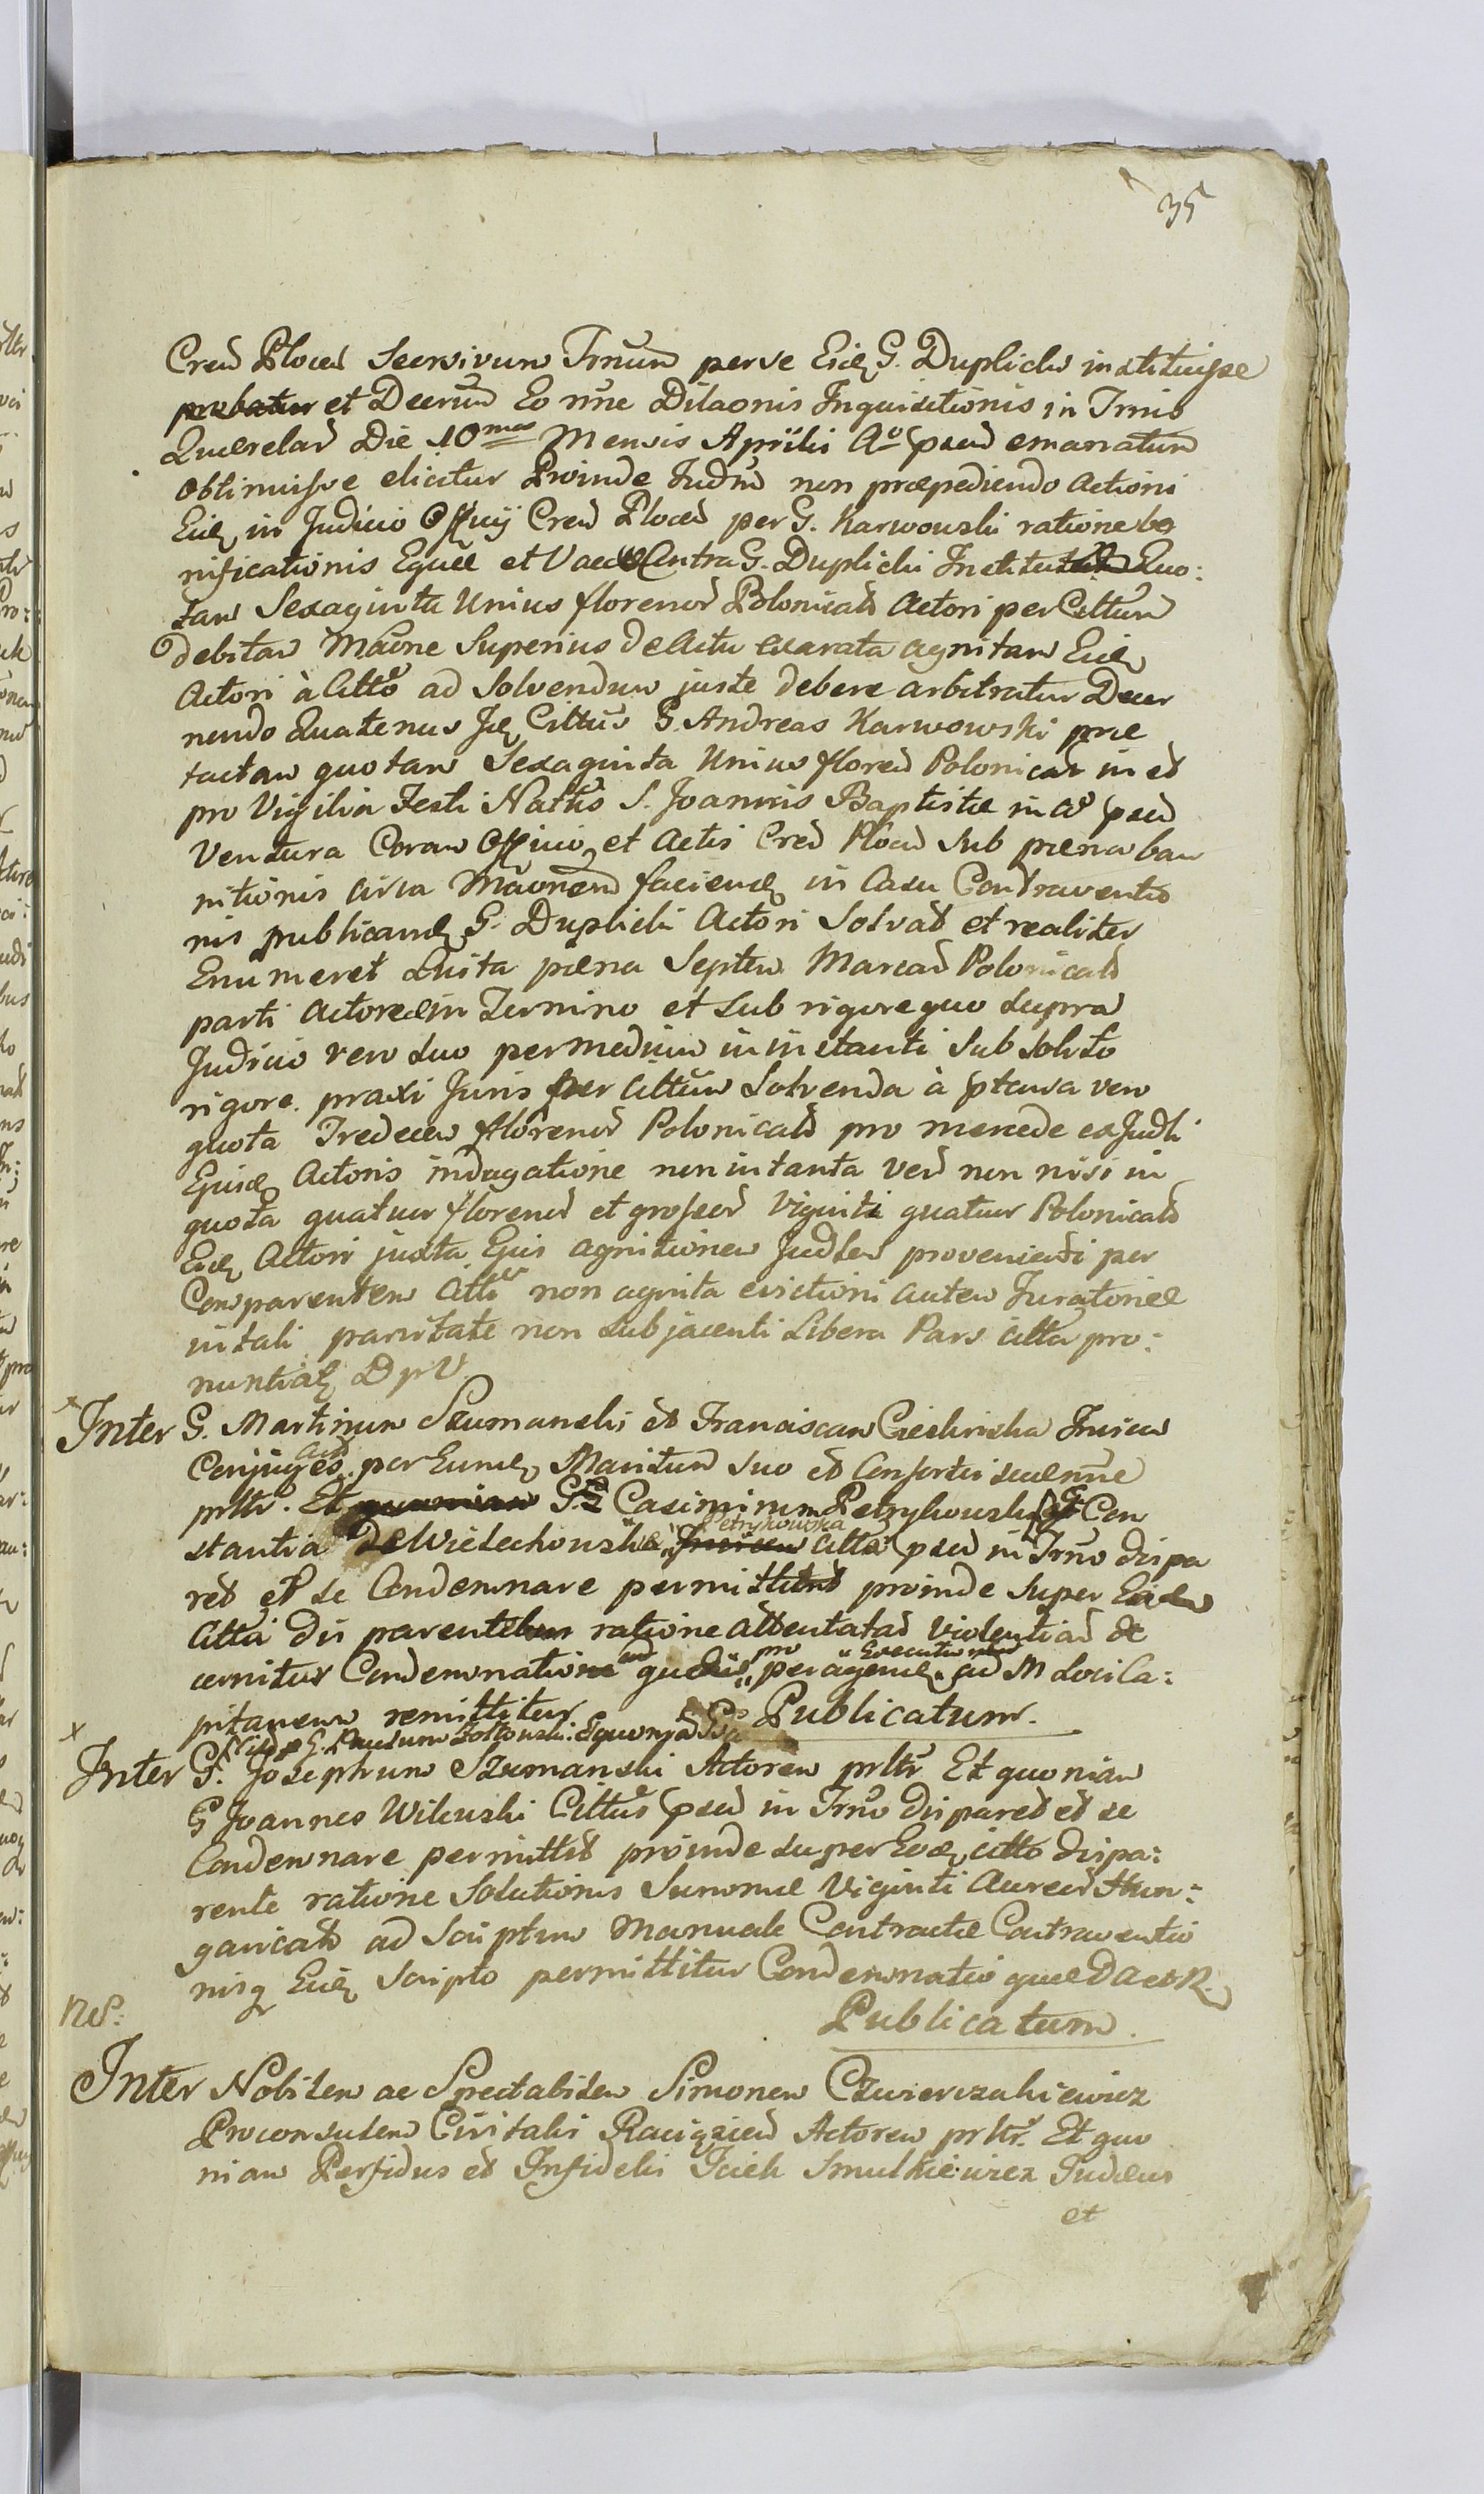 35
Cren Plocen Secrsivum Trnum per se Eidq G. Duplicki instituisse
probatur et Decrūm Eo nne Dilaonis Inquisitionis in Trnio
Querelar Die 10mas Mensis Aprilis Ao psen emanatum
Obtinuisse elicitur Proinde Judm non præpediendo Actioni
Eidq in Judicio Officij Cren Plocen per G. Karwowski ratione bo
nificationis Equæ et Vaccæ Contra G. Duplicki Institut Quo:
tam Sexaginta Unius florenor Polonical Actori per Cittum
debitam Maōne Superius de Actu exarata agnitam Eidq
Actori à Citto ad Solvendum juste debere arbitratur Decer
nendo Quatenus Idq Cittus G. Andreas Karwowski præ
tactam quotam Sexaginta Unius floren Polonical in et
pro Vigilia Festi Nattis S. Joannis Baptistæ in Ao psen
Ventura Coram Officio et Actis Cren Plocen sub pæna ban
nitionis circa Maonem faciendq in Casu Contraventio
nis publicandq G. Duplicki Actori Solvat et realiter
Enumeret Luita pæna Septem Marcar Polonical
parti Actoreæ in Termino et sub rigore quo supra
Judicio vero suo per medium in instanti sub solito
rigore praxi Juris per Cittum Solvenda à ptensa vero
quota Tredecim florenor Polonical pro mercede ex Judli
Ejusdq Actoris indagatione non in tanta verum non nisi in
quota quatuor florenor et grossor Viginti quatuor Polonical
Eidq Actori juxta Ejus agnitionem Judlem provenienti per
Comparentem Citti non agnita evictioni autem Juratoriæ
in tali parvitate non subjacenti Libera Pars Citta pro:
nuntiatq D p V
x
Inter G. Martinum Szumanski et Franciscam Cieslinska Invicem
Actor
Conjuges per Eundq Maritum suo et Consortis suæ nne
prltr. Et G.G. Casimirum Petrykowski et Con
Petrykowska
stantia de Wielechowskie Invicem Citta psen in Trno dispa
ret et se Condemnare permittit proinde super Eadem
Citta dis parente ratione attentatar violentiar de
pro Executione
cernitur Condemnatio quæ peragendq ad M Loci Ca:
pitaneum remittitur Publicatum.
x
p G. Paulum Zołtowski
Inter G. Josephum Szumanski Actorem prltr Et quoniam
G Joannes Wilewski Cittus psen in Trno disparet et se
Condemnare permittit proinde super Eodq citto dispa:
rente ratione Solutionis Summæ Viginti Aureor Hun:
garical ad Scriptum Manuale Contractæ Contraventio
nisq Eidq Scripto permittitur Condemnatio quæ D A et R.
NS: Publicatum.
Inter Nobilem ac Spectabilem Simonem Czwierczakiewicz
Proconsulem Civitatis Raciązien Actorem prltr. Et quo
niam Perfidus et Infidelis Icieh Smulkiewicz Judæus
et